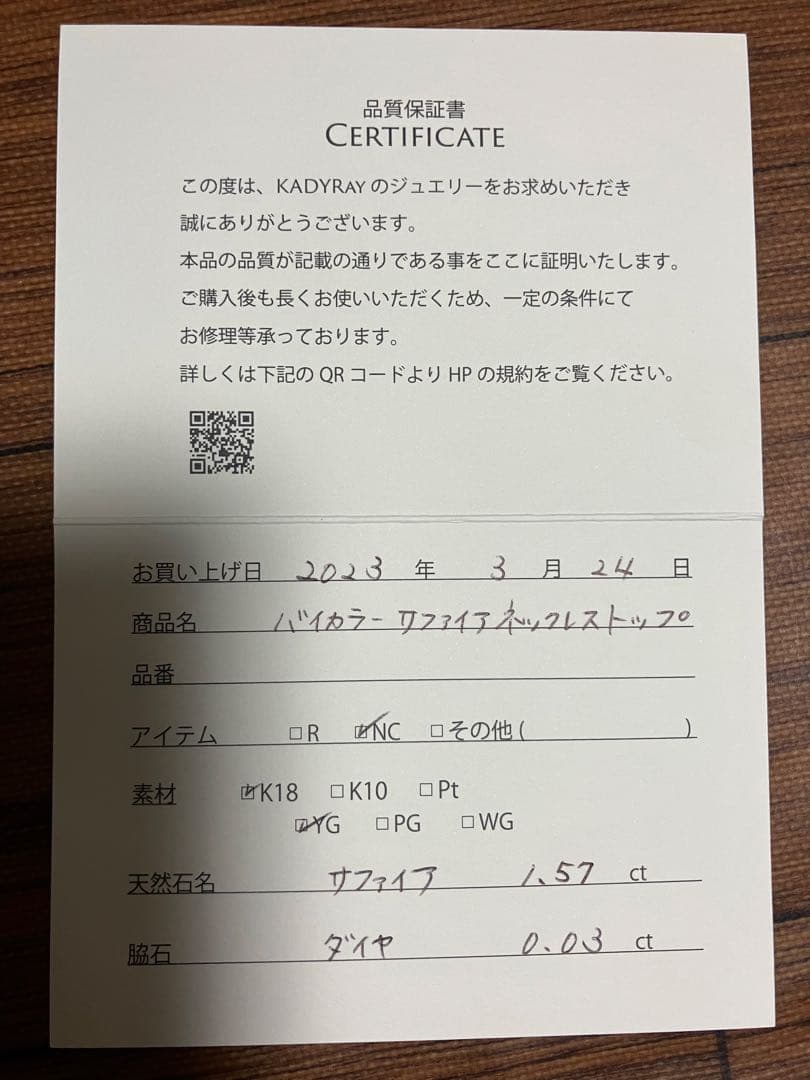 品質保証書
CERTIFICATE
この度は、KADYRAYのジュエリーをお求めいただき
誠にありがとうございます。
本品の品質が記載の通りである事をここに証明いたします。
ご購入後も長くお使いいただくため、一定の条件にて
お修理等承っております。
詳しくは下記のQRコードよりHPの規約をご覧ください。
お買い上げ日 2023 年 3 月 24 日
商品名 バイカラーサファイアネックレストップ
品番
アイテム □R ☑NC □その他( )
素材 ☑K18 □K10 □Pt
☑YG □PG □WG
天然石名 サファイア 1.57 ct
脇石 ダイヤ 0.03 ct